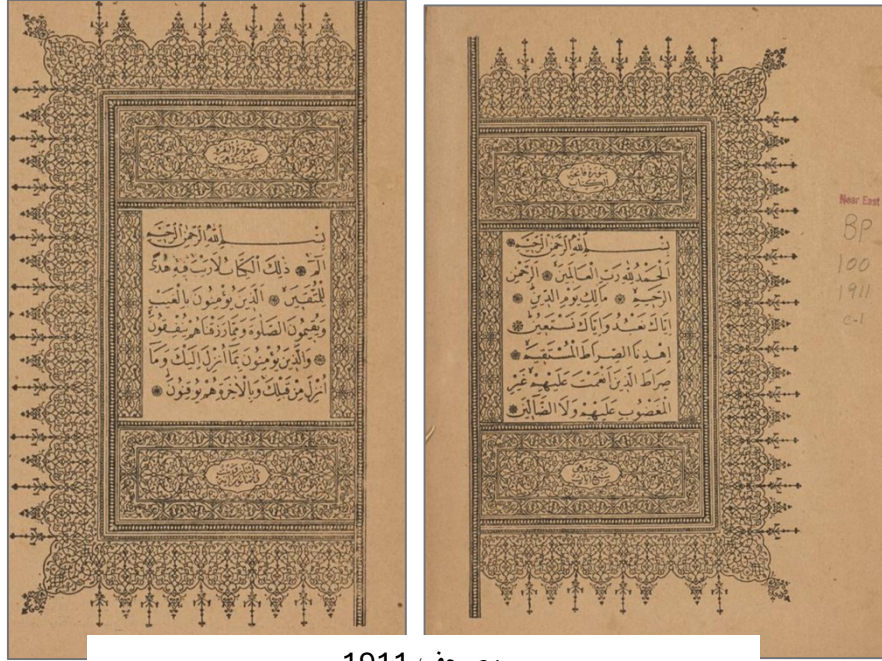 سورة فاتحة
الكتاب
بِسْمِ اللهِ الرَّحْمٰنِ الرَّحِيمِ ۞
اَلْحَمْدُ لِلّٰهِ رَبِّ الْعَالَمِينَ ۞ اَلرَّحْمٰنِ
الرَّحِيمِ ۞ مَالِكِ يَوْمِ الدِّينِ ۞
اِيَّاكَ نَعْبُدُ وَاِيَّاكَ نَسْتَعِينُ ۞
اِهْدِنَا الصِّرَاطَ الْمُسْتَقِيمَ ۞
صِرَاطَ الَّذِينَ اَنْعَمْتَ عَلَيْهِمْ غَيْرِ
الْمَغْضُوبِ عَلَيْهِمْ وَلَا الضَّالِّينَ ۞
سبع آيات
Near East
BP
100
1911
c-1
سورة البقرة
بِسْمِ اللهِ الرَّحْمٰنِ الرَّحِيمِ
الٓمٓ ۞ ذٰلِكَ الْكِتَابُ لَا رَيْبَ فِيهِ هُدًى
لِلْمُتَّقِينَ ۞ اَلَّذِينَ يُؤْمِنُونَ بِالْغَيْبِ
وَيُقِيمُونَ الصَّلٰوةَ وَمِمَّا رَزَقْنَاهُمْ يُنْفِقُونَ
۞ وَالَّذِينَ يُؤْمِنُونَ بِمَا اُنْزِلَ اِلَيْكَ وَمَا
اُنْزِلَ مِنْ قَبْلِكَ وَبِالْاٰخِرَةِ هُمْ يُوقِنُونَ ۞
1911